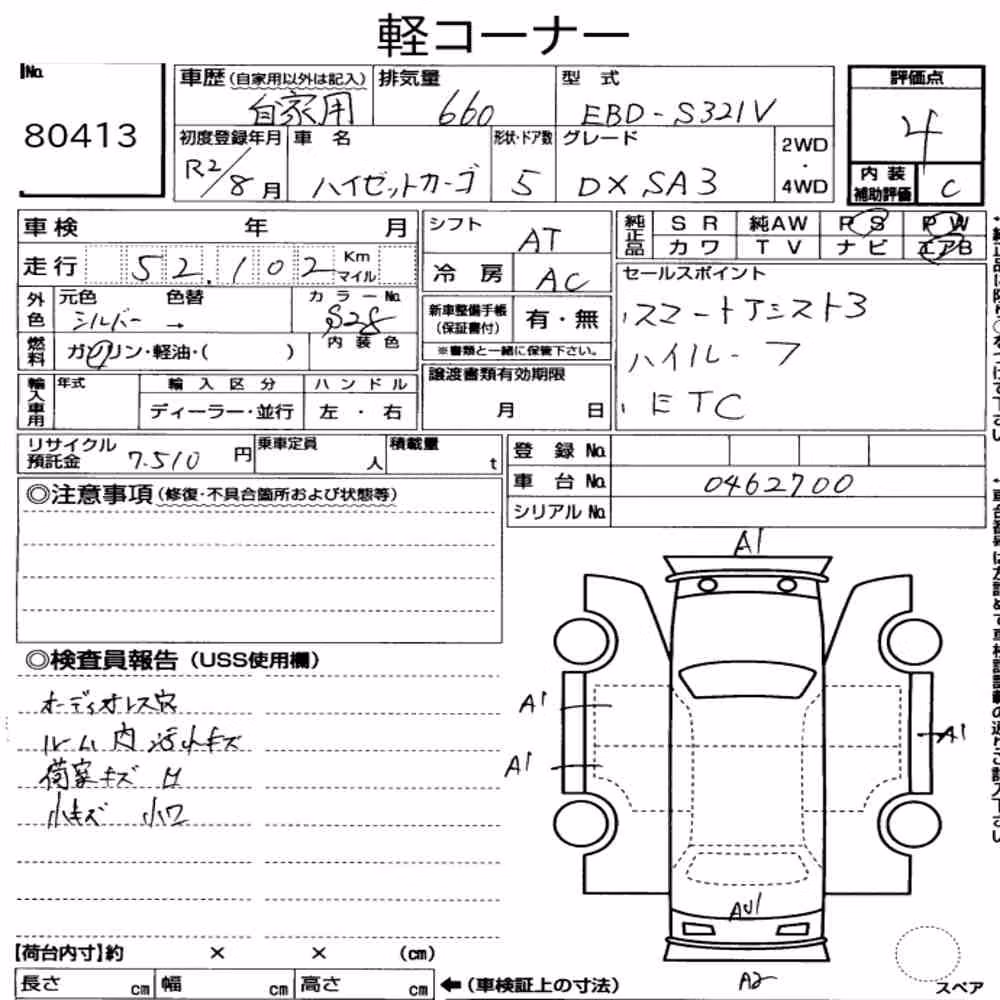 軽コーナー
No. 80413
車歴 (自家用以外は記入) 自家用
排気量 660
型式 EBD-S321V
評価点 4
内装補助評価 C
初度登録年月 R2/8月
車名 ハイゼットカーゴ
形状・ドア数 5
グレード DX SA3
2WD・4WD
車検 年 月
走行 52,102 Km マイル
シフト AT
冷房 AC
純正品 SR 純AW PS PW
カワ TV ナビ エアB
外色 元色 シルバー 色替 →
カラーNo. S28
内装色
燃料 ガソリン・軽油・( )
新車整備手帳(保証書付) 有・無
※書類と一緒に保管下さい。
セールスポイント
スマートアシスト3
ハイルーフ
ETC
輸入車用 年式
輸入区分 ディーラー・並行
ハンドル 左・右
譲渡書類有効期限
月 日
リサイクル預託金 7.510 円
乗車定員 人
積載量 t
登録No.
車台No. 0462700
シリアルNo.
◎注意事項(修復・不具合箇所および状態等)
◎検査員報告(USS使用欄)
オーディオレス穴
ルーム内 汚れキズ
荷室キズ凹
小キズ 小ワ
A1
A1
A1
A1
AU1
A2
スペア
【荷台内寸】約 × × (cm)
長さ cm 幅 cm 高さ cm ←(車検証上の寸法)